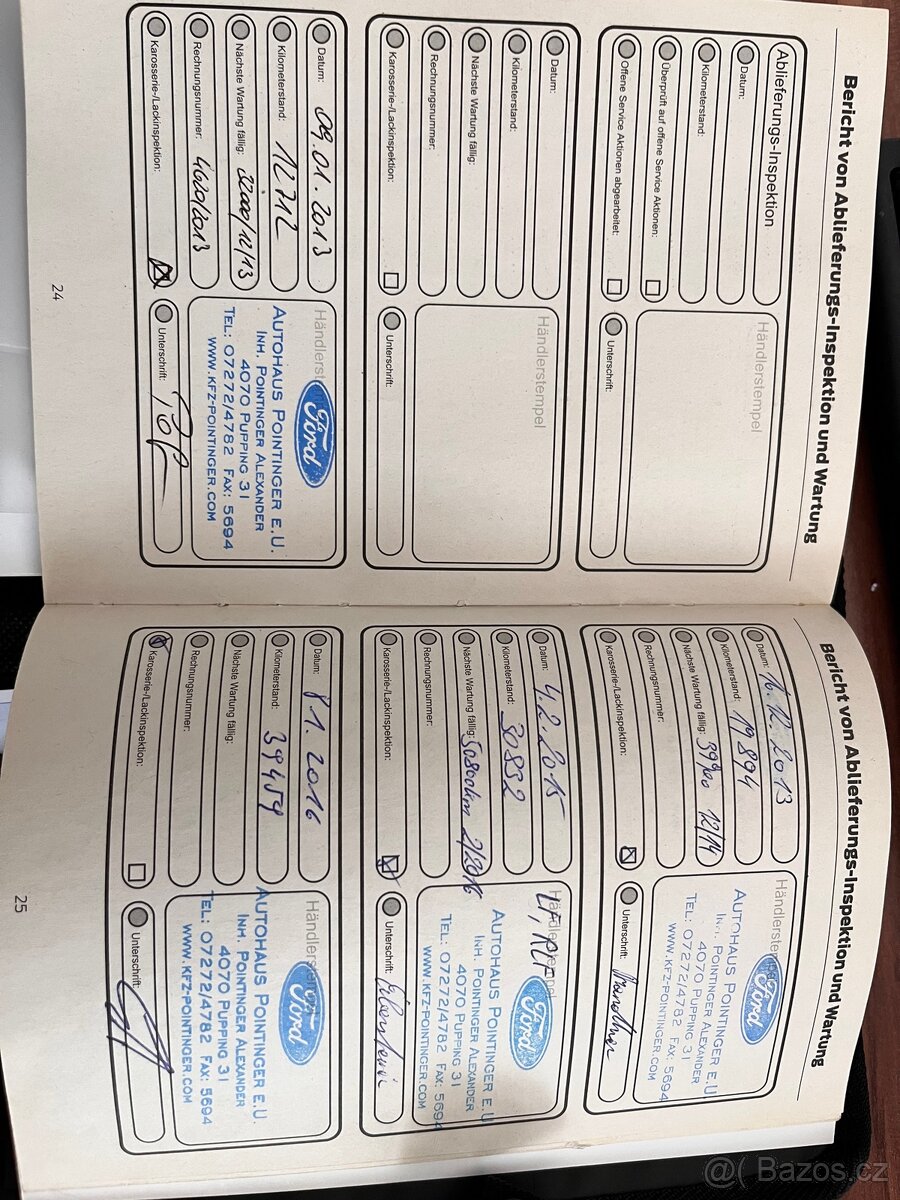 Bericht von Ablieferungs-Inspektion und Wartung
Ablieferungs-Inspektion
Datum:
Kilometerstand:
Überprüft auf offene Service Aktionen:
Offene Service Aktionen abgearbeitet:
Händlerstempel
Unterschrift:
Datum:
Kilometerstand:
Nächste Wartung fällig:
Rechnungsnummer:
Karosserie-/Lackinspektion:
Händlerstempel
Unterschrift:
Datum: 09.01.2013
Kilometerstand: 12712
Nächste Wartung fällig: 32000/12/13
Rechnungsnummer: 4620/2013
Karosserie-/Lackinspektion:
Händlerst
Ford
AUTOHAUS POINTINGER E.U.
INH. POINTINGER ALEXANDER
4070 PUPPING 31
TEL: 07272/4782 FAX: 5694
WWW.KFZ-POINTINGER.COM
Unterschrift:
24
Bericht von Ablieferungs-Inspektion und Wartung
Datum: 16.12.2013
Kilometerstand: 19894
Nächste Wartung fällig: 39900 12/14
Rechnungsnummer:
Karosserie-/Lackinspektion:
Händlerstempel
Ford
AUTOHAUS POINTINGER E.U
INH. POINTINGER ALEXANDER
4070 PUPPING 31
TEL: 07272/4782 FAX: 5694
WWW.KFZ-POINTINGER.COM
Unterschrift:
Datum: 4.2.2015
Kilometerstand: 30832
Nächste Wartung fällig: 50800km 2/2016
Rechnungsnummer:
Karosserie-/Lackinspektion:
Händlerstempel
Ford
AUTOHAUS POINTINGER E.U
INH. POINTINGER ALEXANDER
4070 PUPPING 31
TEL: 07272/4782 FAX: 5694
WWW.KFZ-POINTINGER.COM
Unterschrift:
Datum: 8 1. 2016
Kilometerstand: 39459
Nächste Wartung fällig:
Rechnungsnummer:
Karosserie-/Lackinspektion:
Händlerstempel
Ford
AUTOHAUS POINTINGER E.U
INH. POINTINGER ALEXANDER
4070 PUPPING 31
TEL: 07272/4782 FAX: 5694
WWW.KFZ-POINTINGER.COM
Unterschrift:
25
@( Bazos.cz